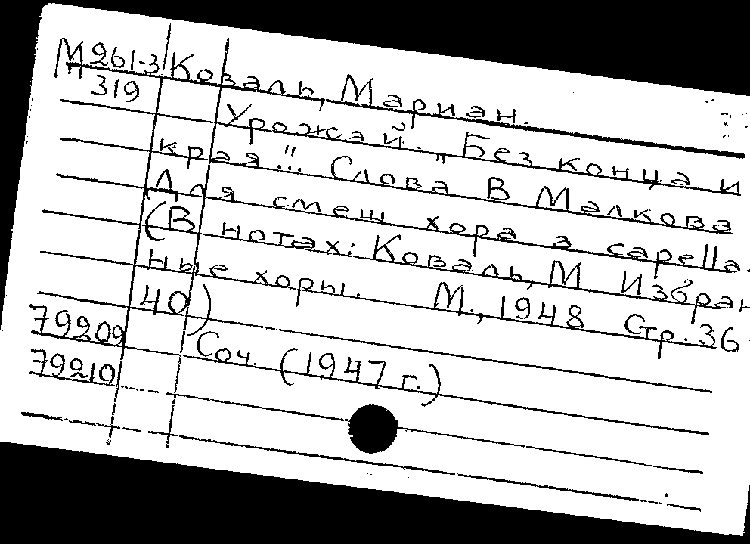 М261-3 Коваль, Мариан.
319
Урожай. „Без конца и
края!!. Слова В Малкова
Для смеш хора а capella.
(В нотах: Коваль, М Избран
ные хоры. М., 1948 Стр. 36
40)
79209 Соч. (1947 г.)
79210